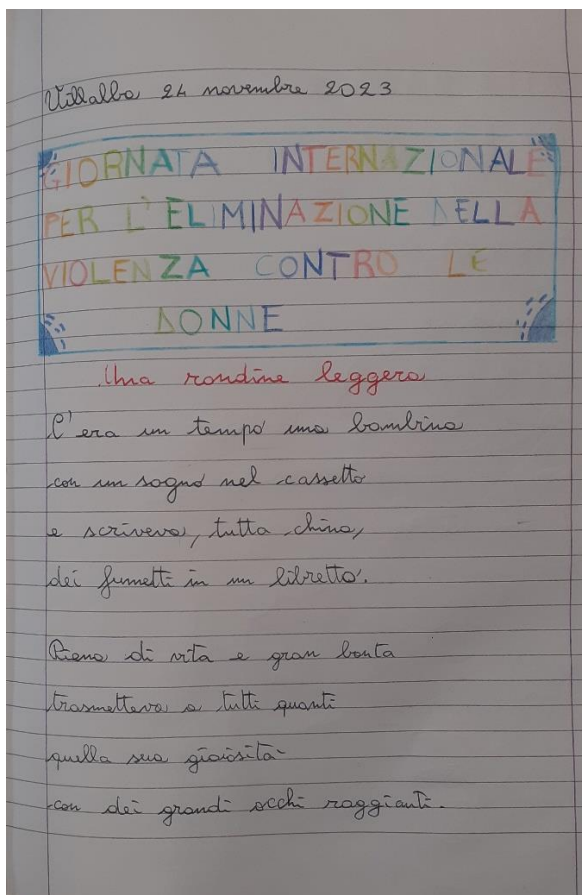 Villalba 24 novembre 2023
GIORNATA INTERNAZIONALE
PER L'ELIMINAZIONE DELLA
VIOLENZA CONTRO LE
DONNE
Una rondine leggera
C'era un tempo una bambina
con un sogno nel cassetto
e scriveva, tutta china,
dei fumetti in un libretto.
Piena di vita e gran bonta
trasmetteva a tutti quanti
quella sua gioiosità
con dei grandi occhi raggianti.